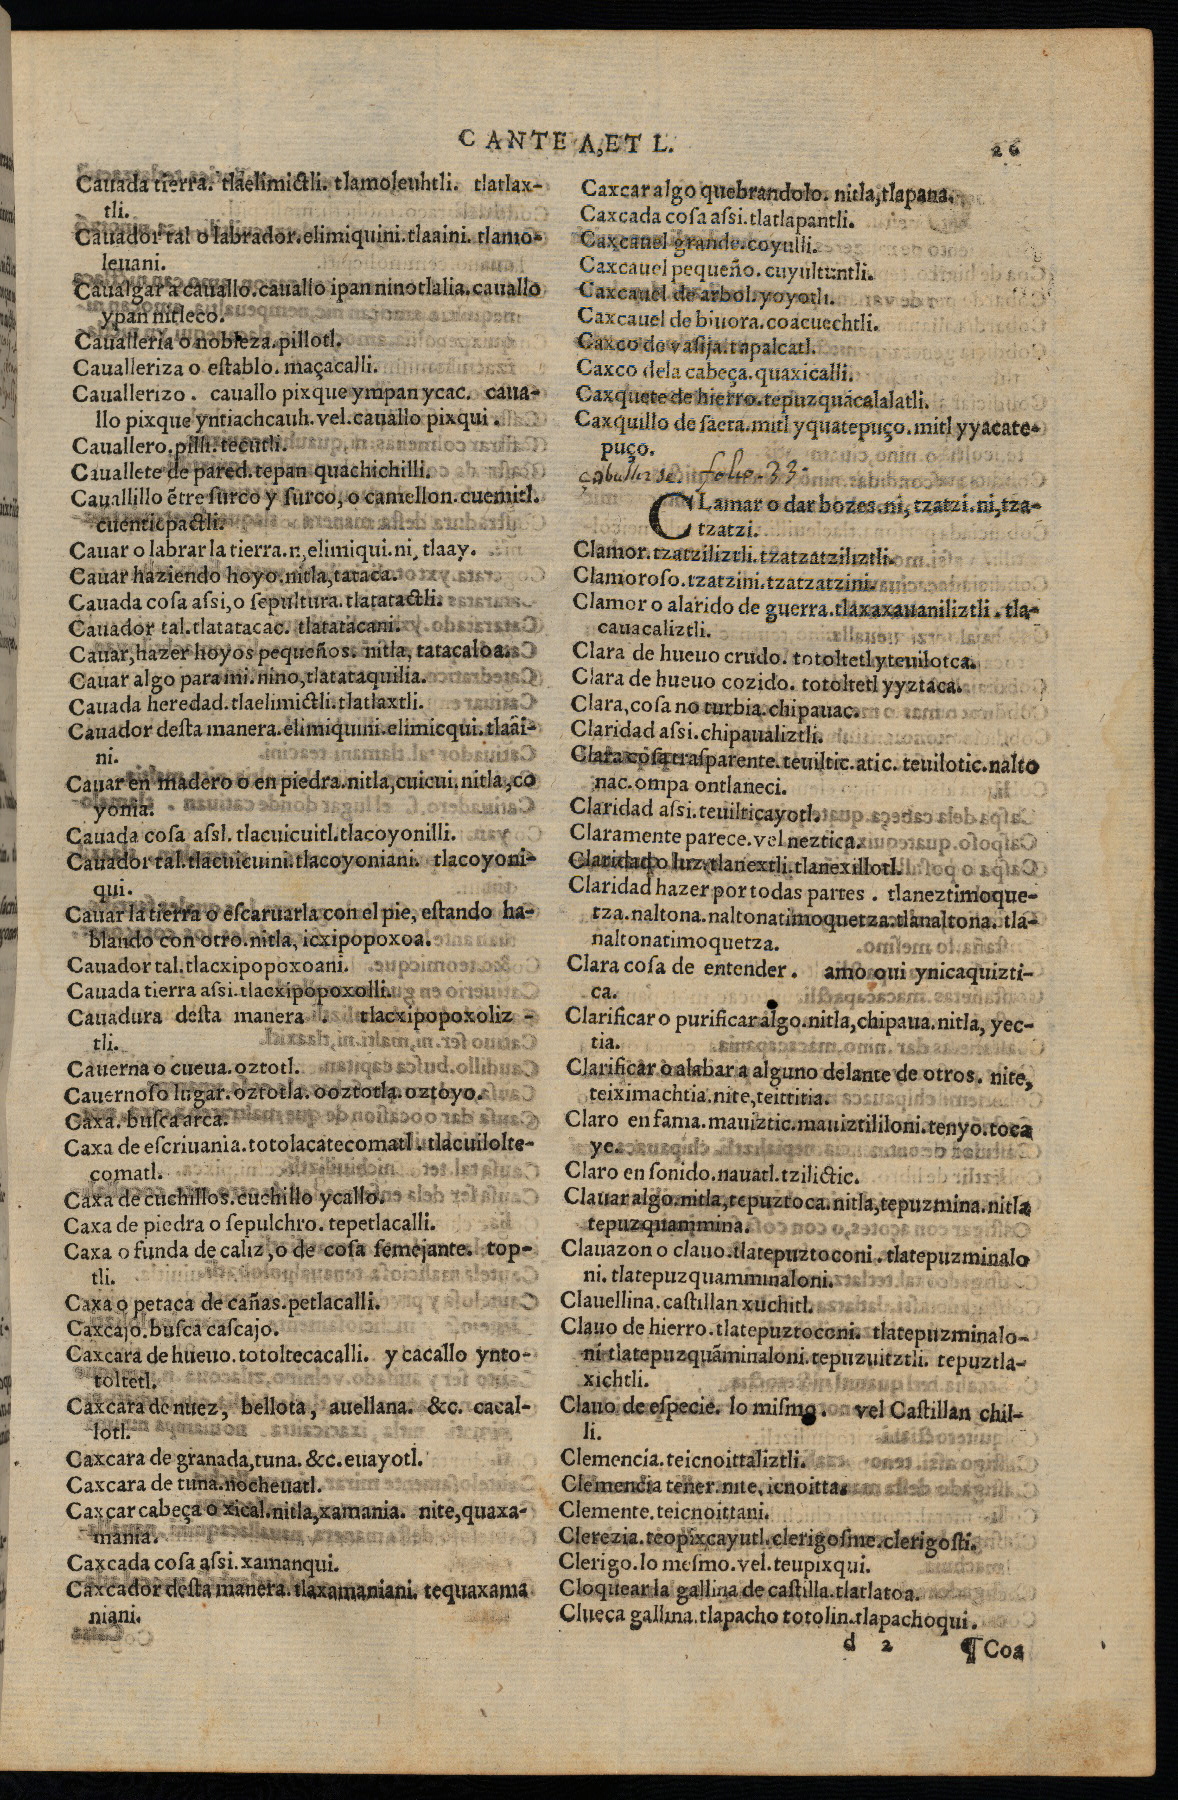 CANTE A, ET L.
26
Cauada tierra. tlaelimictli. tlamoleuhtli. tlatlax-
tli.
Cauador tal o labrador. elimiquini. tlaaini. tlamo-
leuani.
Caualgar a cauallo. cauallo ipan ninotlalia. cauallo
ypan nitleco.
Caualleria o nobleza. pillotl.
Caualleriza o eſtablo. maçacalli.
Cauallerizo. cauallo pixque ympan ycac. caua-
llo pixque yntiachcauh. vel. cauallo pixqui.
Cauallero. pilli. tecutli.
Cauallete de pared. tepan quachichilli.
Cauallillo ẽtre ſurco y ſurco, o camellon. cuemitl.
cuenticpactli.
Cauar o labrar la tierra. n, elimiqui. ni, tlaay.
Cauar haziendo hoyo. nitla, tataca.
Cauada coſa aſsi, o ſepultura. tlatatactli.
Cauador tal. tlatatacac. tlatatacani.
Cauar, hazer hoyos pequeños. nitla, tatacaloa.
Cauar algo para mi. nino, tlatataquilia.
Cauada heredad. tlaelimictli. tlatlaxtli.
Cauador deſta manera. elimiquini. elimicqui. tlaãi-
ni.
Cauar en madero o en piedra. nitla, cuicui. nitla, co
yonia.
Cauada coſa aſsl. tlacuicuitl. tlacoyonilli.
Cauador tal. tlacuicuini. tlacoyoniani. tlacoyoni-
qui.
Cauar la tierra o eſcaruarla con el pie, eſtando ha-
blando con otro. nitla, icxipopoxoa.
Cauador tal. tlacxipopoxoani.
Cauada tierra aſsi. tlacxipopoxolli.
Cauadura deſta manera. tlacxipopoxoliz-
tli.
Cauerna o cueua. oztotl.
Cauernoſo lugar. oztotla. ooztotla. oztoyo.
Caxa. buſca arca.
Caxa de eſcriuania. totolacatecomatl. tlacuilolte-
comatl.
Caxa de cuchillos. cuchillo ycallo.
Caxa de piedra o ſepulchro. tepetlacalli.
Caxa o funda de caliz, o de coſa ſemejante. top-
tli.
Caxa o petaca de cañas. petlacalli.
Caxcajo. buſca caſcajo.
Caxcara de hueuo. totoltecacalli. y cacallo ynto-
toltetl.
Caxcara de nuez, bellota, auellana. &c. cacal-
lotl.
Caxcara de granada, tuna. &c. euayotl.
Caxcara de tuna. nocheuatl.
Caxcar cabeça o xical. nitla, xamania. nite, quaxa-
mania.
Caxcada coſa aſsi. xamanqui.
Caxcador deſta manera. tlaxamaniani. tequaxama
niani.
Caxcar algo quebrandolo. nitla, tlapana.
Caxcada coſa aſsi. tlatlapantli.
Caxcauel grande. coyulli.
Caxcauel pequeño. cuyultuntli.
Caxcauel de arbol. yoyotli.
Caxcauel de biuora. coacuechtli.
Caxco de vaſija. tapalcatl.
Caxco dela cabeça. quaxicalli.
Caxquete de hierro. tepuzquacalalatli.
Caxquillo de ſaeta. mitl yquatepuço. mitl yyacate-
puço.
Çabullirse. folio. 33.
CLamar o dar bozes. ni, tzatzi. ni, tza-
tzatzi.
Clamor. tzatziliztli. tzatzatziliztli.
Clamoroſo. tzatzini. tzatzatzini.
Clamor o alarido de guerra. tlaxaxauaniliztli. tla-
cauacaliztli.
Clara de hueuo crudo. totoltetl yteuilotca.
Clara de hueuo cozido. totoltetl yyztaca.
Clara, coſa no turbia. chipauac.
Claridad aſsi. chipaualiztli.
Clara coſa traſparente. teuiltic. atic. teuilotic. nalto
nac. ompa ontlaneci.
Claridad aſsi. teuilticayotl.
Claramente parece. vel neztica.
Claridad o luz. tlanextli. tlanexillotl.
Claridad hazer por todas partes. tlaneztimoque-
tza. naltona. naltonatimoquetza. tlanaltona. tla-
naltonatimoquetza.
Clara coſa de entender. amo oui ynicaquizti-
ca.
Clarificar o purificar algo. nitla, chipaua. nitla, yec-
tia.
Clarificar o alabar a alguno delante de otros. nite,
teiximachtia. nite, teittitia.
Claro en fama. mauiztic. mauiztililoni. tenyo. toca
ye.
Claro en ſonido. nauatl. tzilictic.
Clauar algo. nitla, tepuztoca. nitla, tepuzmina. nitla
tepuzquammina.
Clauazon o clauo. tlatepuztoconi. tlatepuzminalo
ni. tlatepuzquamminaloni.
Clauellina. caſtillan xuchitl.
Clauo de hierro. tlatepuztoconi. tlatepuzminalo-
ni tlatepuzquãminaloni. tepuzuitztli. tepuztla-
xichtli.
Clauo de eſpecie. lo miſmo. vel Caſtillan chil-
li.
Clemencia. teicnoittaliztli.
Clemencia tener. nite, icnoitta.
Clemente. teicnoittani.
Clerezia. teopixcayutl. clerigoſme. clerigoſti.
Clerigo. lo meſmo. vel. teupixqui.
Cloquear la gallina de caſtilla. tlatlatoa.
Clueca gallina. tlapacho totolin. tlapachoqui.
d 2
¶ Coa